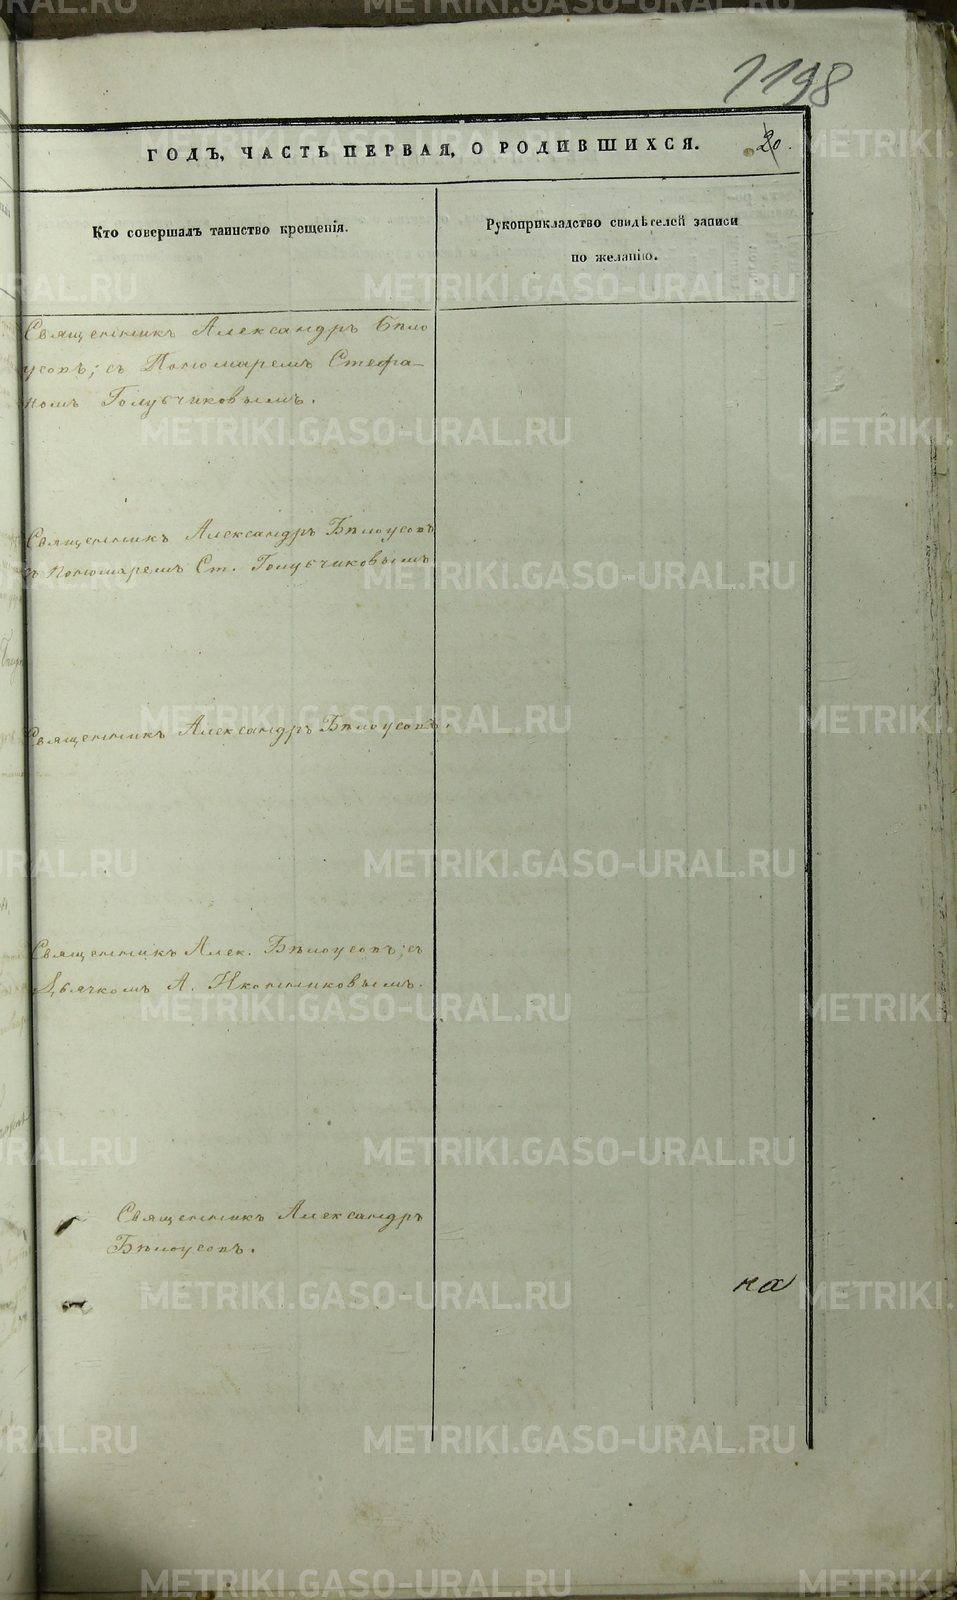 1198
ГОДЪ, ЧАСТЬ ПЕРВАЯ, О РОДИВШИХСЯ. 20.
Кто совершалъ таинство крещенія.
Рукоприкладство свидѣтелей записи
по желанію.
Священникъ Александръ Бѣло
усовъ; съ Пономаремъ Стефа-
номъ Голубчиковымъ.
Священникъ Александръ Бѣлоусовъ
съ Пономаремъ Ст. Голубчиковымъ
Священникъ Александръ Бѣлоусовъ.
Священникъ Алек. Бѣлоусовъ; съ
Дьячкомъ А. Иконниковымъ.
Священникъ Александръ
Бѣлоусовъ.
на
METRIKI.GASO-URAL.RU